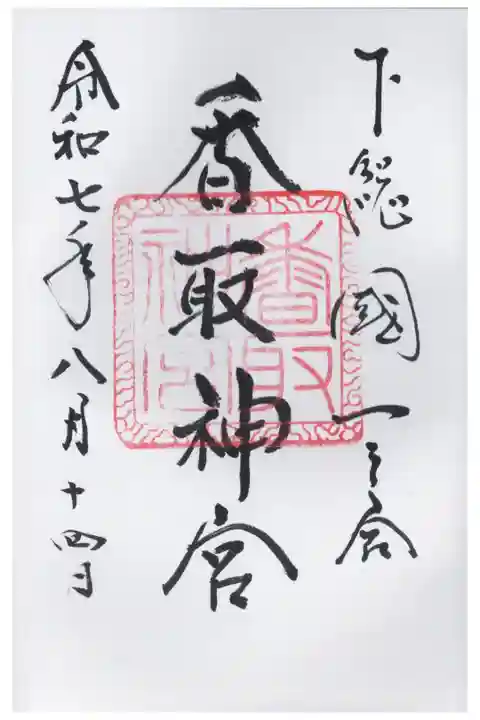 下総國一之宮
香取神宮
令和七年八月十四日